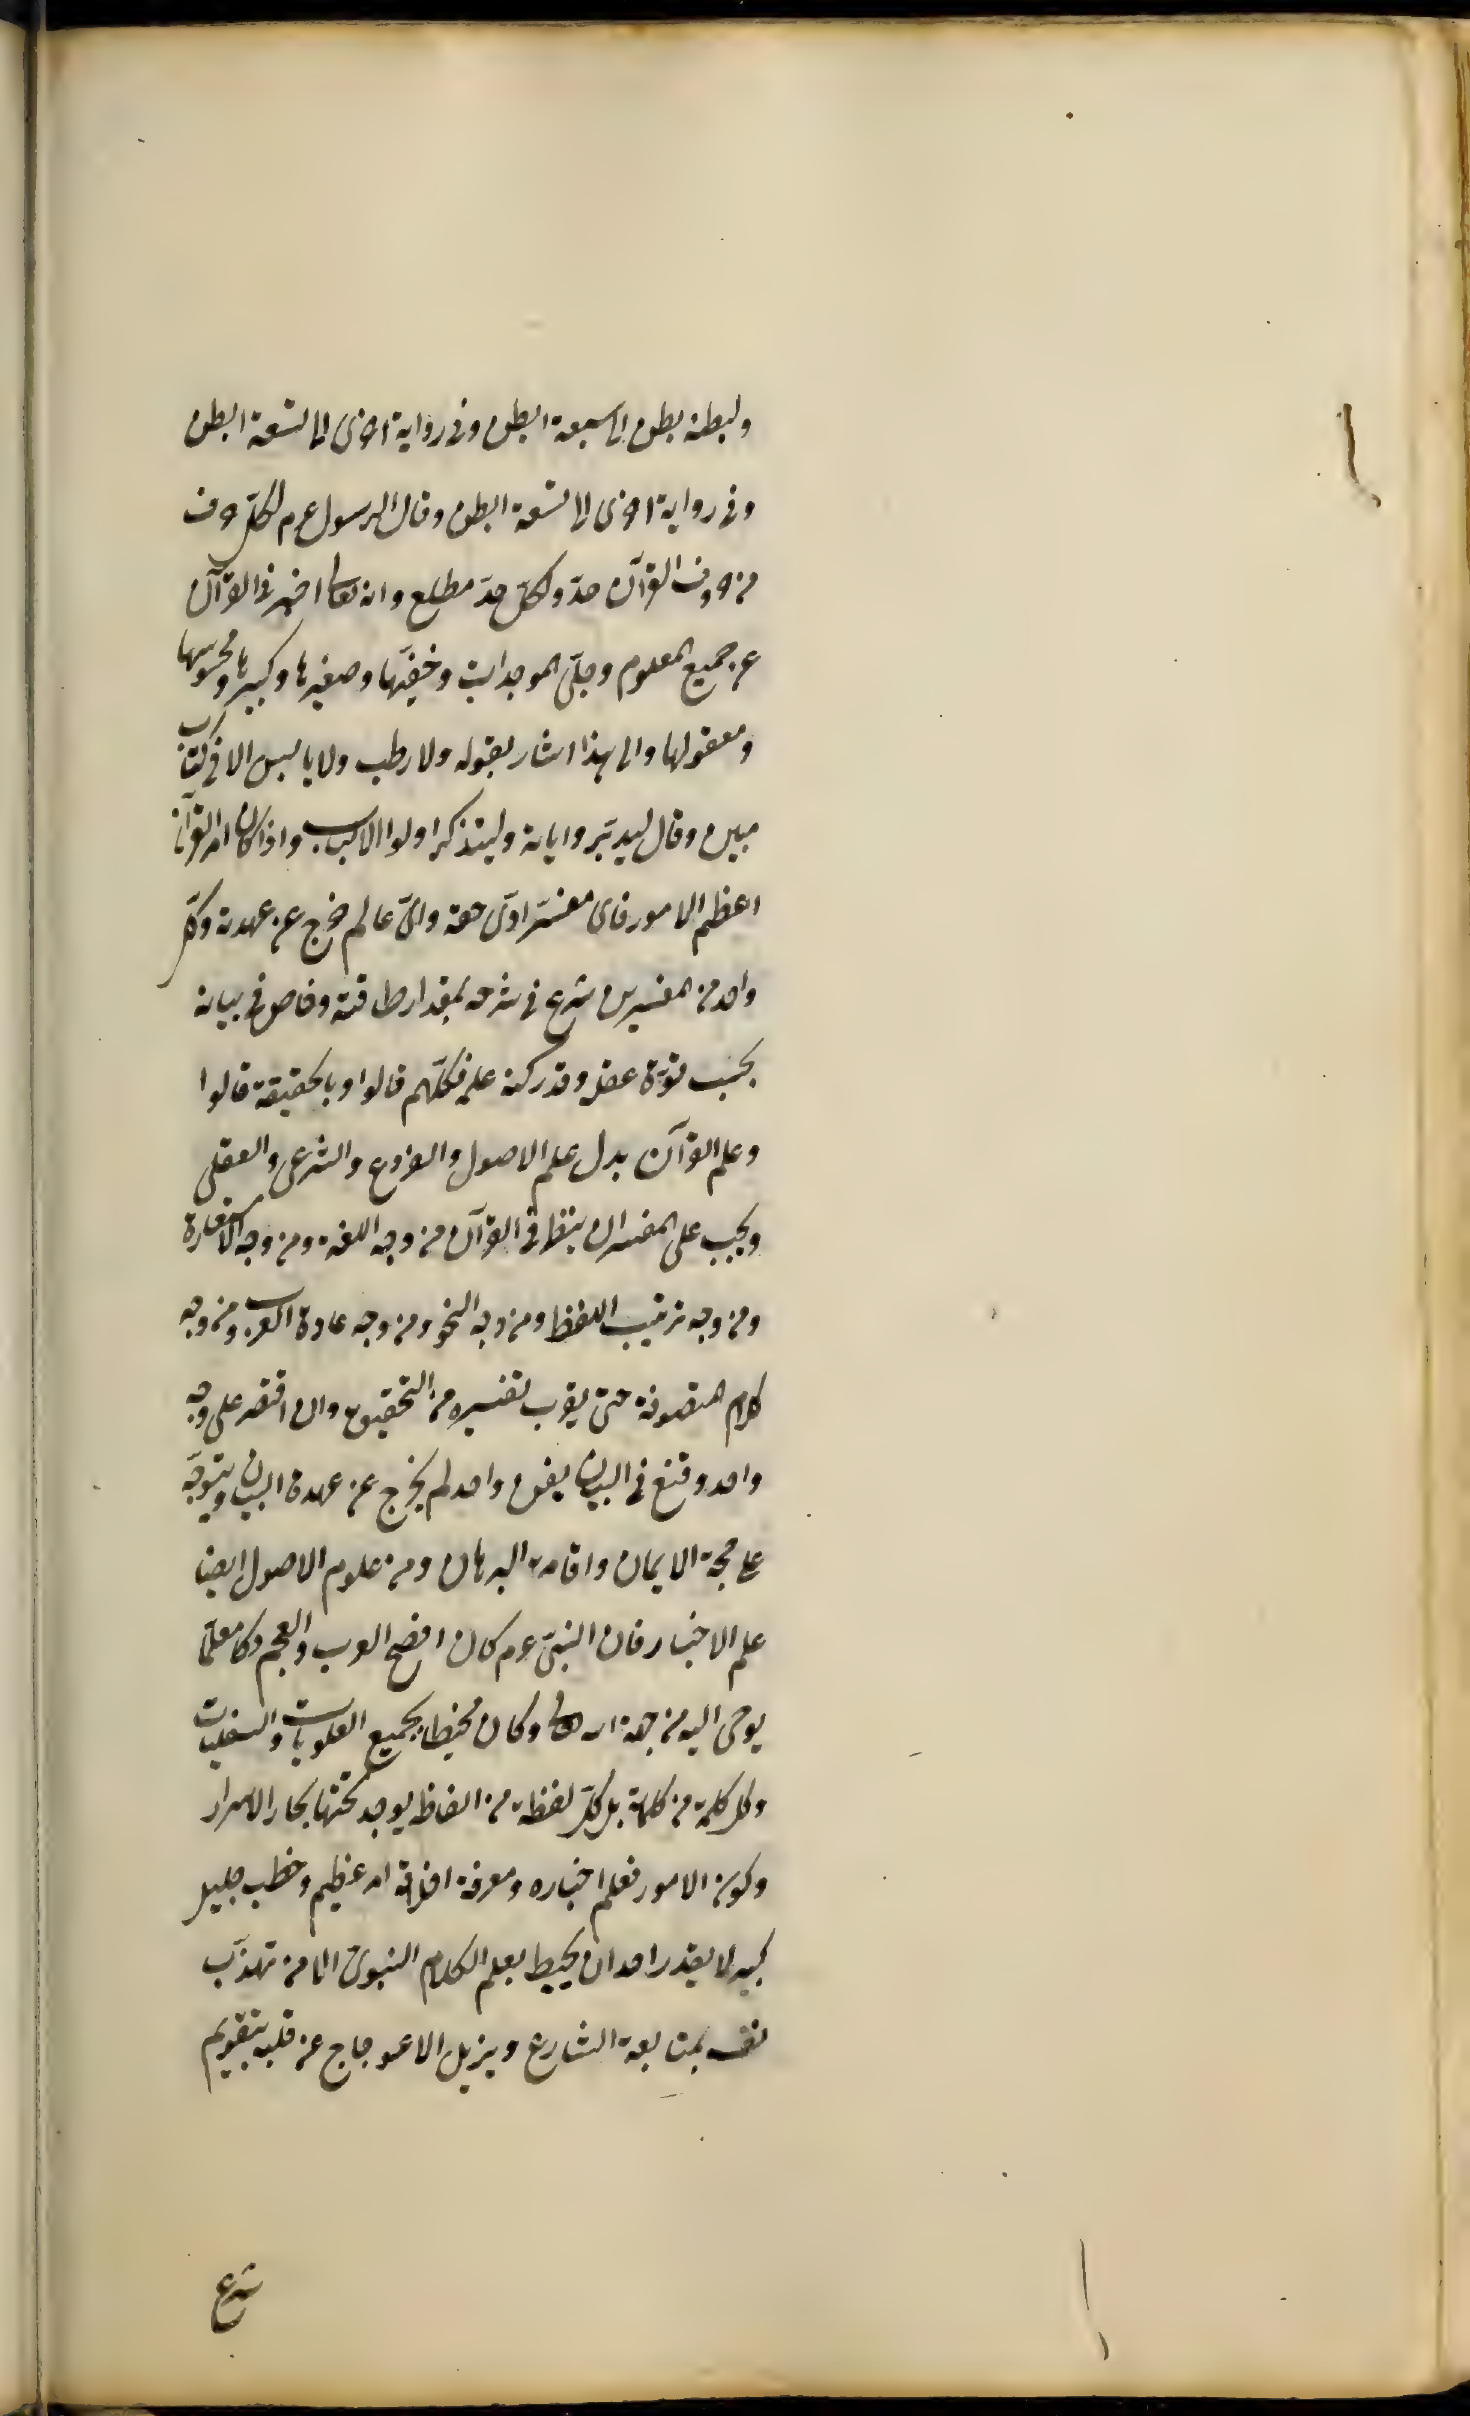 ولبطنه بطن الى سبعة ابطن وفى رواية اخرى الى تسعة ابطن
وفى رواية اخرى الى تسعة ابطن وقال الرسول عم لكل حرف
من حروف القرآن حدّ ولكلّ حدّ مطلع وانه تعالى اخبر فى القرآن
عن جميع المعلوم وجلىّ الموجدات وخفيّها وصغيرها وكبيرها ومحسوسها
ومعقولها والى هذا اشار بقوله ولا رطب ولا يابس الا فى كتاب
مبين وقال ليدبّروا اياته وليتذكر اولوا الالباب واذا كان امر القرآن
اعظم الامور فاى مفسّر ادّى حقه واىّ عالم خرج عن عهدته وكلّ
واحد من المفسرين شرع فى شرحه بمقدار طاقته وخاض فى بيانه
بحسب قوّة عقله وقدر كنه علمه فكلّهم قالوا وبالحقيقة قالوا
وعلم القرآن يدل علم الاصول والفروع والشرعى والعقلى
ويجب على المفسر ان ينظر فى القرآن من وجه اللغة ومن وجه الاستعارة
ومن وجه ترتيب اللفظ ومن وجه النحو ومن وجه عادة العرب ومن وجه
كلام المتصوفة حتى يقرب تفسيره من التحقيق وان اقتصر على وجه
واحد وقنع فى البيان بفن واحد لم يخرج عن عهدة البيان ويتوجّه
على حجة الايمان واقامة البرهان ومن علوم الاصول ايضا
علم الاخبار فان النبىّ عم كان افصح العرب والعجم وكان معلّما
يوحى اليه من جهة الله تعالى وكان محيطا بجميع العلويات والسفليات
وكل كلمة من كلماته بل كلّ لفظة من الفاظه يوجد تحتها بحار الاسرار
وكنوز الامور فعلم اخباره ومعرفة اخلاقه امر عظيم وخطب جليل
كبير لا يقدر احد ان يحيط بعلم الكلام النبوى الا من تهذّب
نفسه بمتابعة الشارع ويزيل الاعوجاج عن قلبه بتقويم
شرع